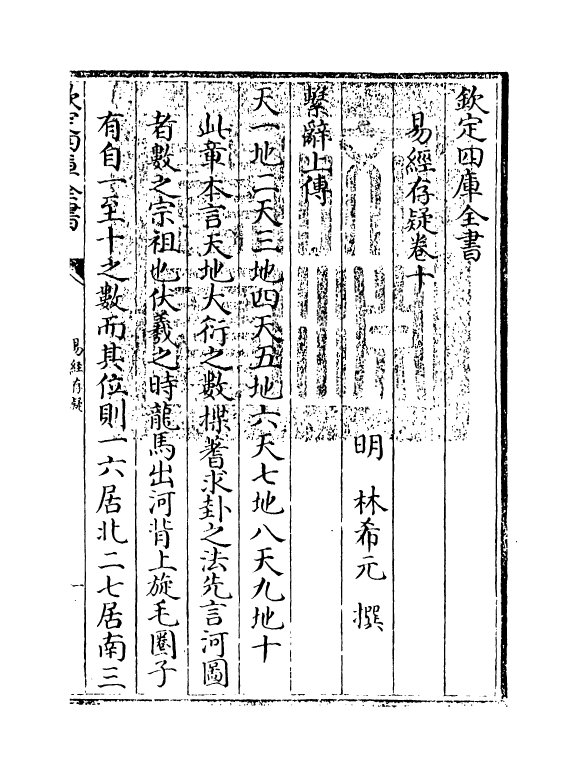 欽定四庫全書
易經存疑卷十
明 林希元 撰
繫辭上傳
天一地二天三地四天五地六天七地八天九地十
此章本言天地大衍之數揲蓍求卦之法先言河圖
者數之宗祖也伏羲之時龍馬出河背上旋毛圈子
有自一至十之數而其位則一六居北二七居南三
欽定四庫全書
易經存疑
一